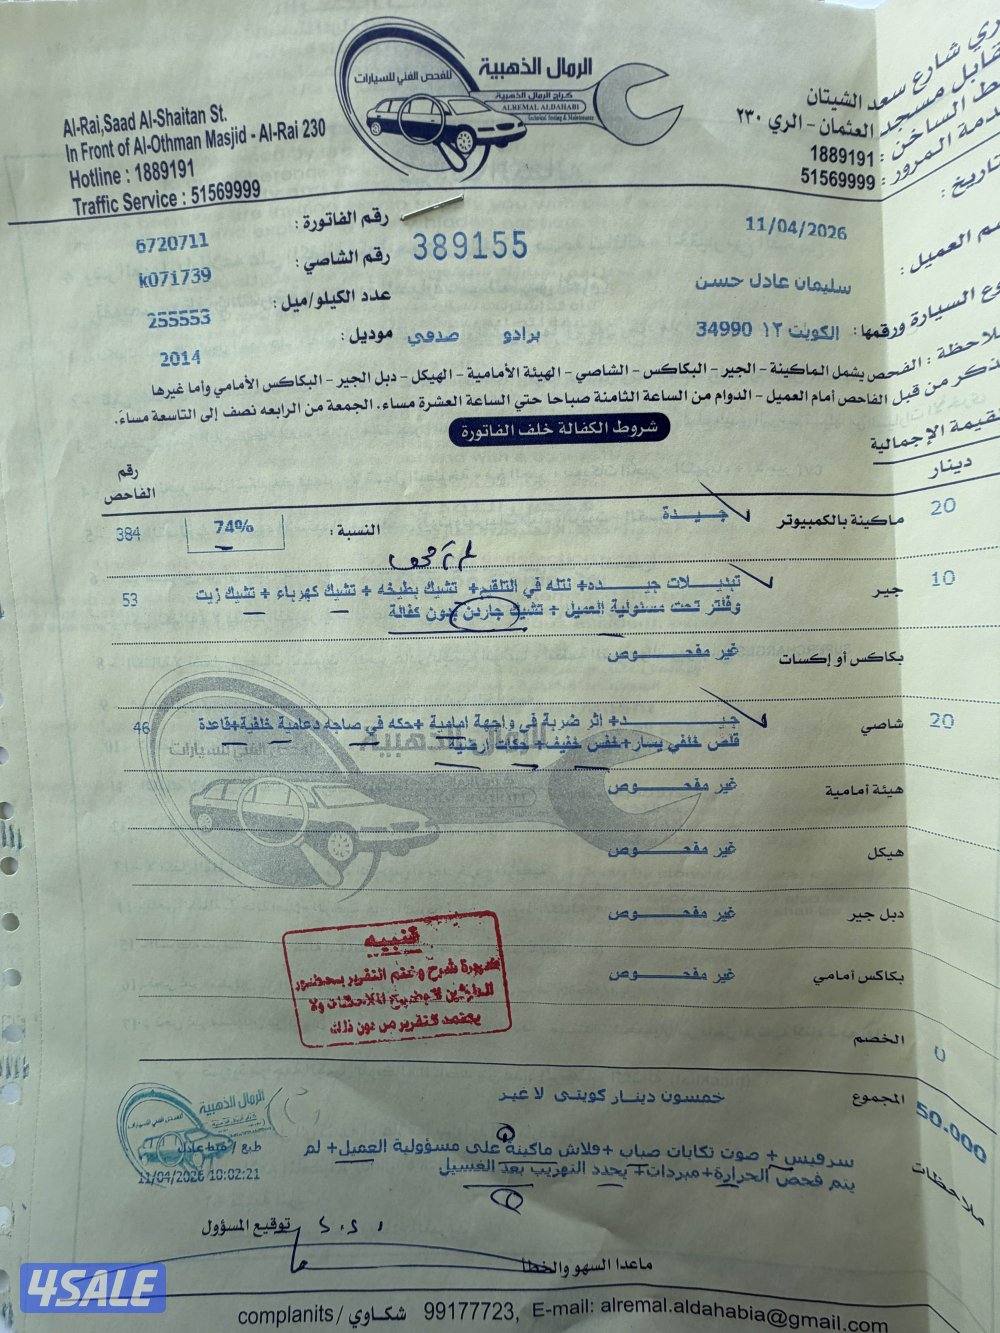 الرمال الذهبية
للفحص الفني للسيارات
كراج الرمال الذهبية
ALREMAL ALDAHABI
Technical Testing & Maintenance
Al-Rai,Saad Al-Shaitan St.
In Front of Al-Othman Masjid - Al-Rai 230
Hotline : 1889191
Traffic Service : 51569999
ري شارع سعد الشيتان
قابل مسجد العثمان - الري ٢٣٠
ط الساخن : 1889191
دمة المرور : 51569999
تاريخ : 11/04/2026
رقم الفاتورة : 6720711
389155
م العميل : سليمان عادل حسن
رقم الشاصي : k071739
عدد الكيلو/ميل : 255553
وع السيارة ورقمها : الكويت ١٢ 34990 برادو صدفي
موديل : 2014
لاحظة : الفحص يشمل الماكينة - الجير - البكاكس - الشاصي - الهيئة الأمامية - الهيكل - دبل الجير - البكاكس الأمامي وأما غيرها
ذكر من قبل الفاحص أمام العميل - الدوام من الساعة الثامنة صباحا حتي الساعة العشرة مساء. الجمعة من الرابعه نصف إلى التاسعة مساءً.
شروط الكفالة خلف الفاتورة
قيمة الإجمالية
دينار
رقم الفاحص
20 ماكينة بالكمبيوتر جيــدة النسبة : 74% 384
10 جير تبديــلات جيــده+ نتله في التلقيم+ تشيك بطيخه + تشيك كهرباء + تشيك زيت 53
وفلتر تحت مسئولية العميل + تشيك جاردن بدون كفالة
بكاكس أو إكسات غير مفحــوص
20 شاصي جيــد+ اثر ضربة في واجهة امامية +حكه في صاجه دعامية خلفية+قاعدة 46
قلص خلفي يسار+ خفس خفيف+ حكات ارضية
هيئة أمامية غير مفحــوص
هيكل غير مفحــوص
دبل جير غير مفحــوص
بكاكس أمامي غير مفحــوص
تنبيه
ضرورة شرح وختم التقرير بحضور
الطرفين لتوضيح الملاحظات ولا
يعتمد التقرير من دون ذلك
الخصم 0
المجموع خمسون دينار كويتي لا غير
50.000
ملاحظات
سرفيس + صوت تكايات صباب +فلاش ماكينة على مسؤولية العميل+ لم
يتم فحص الحرارة+ مبردات+ يحدد التهريب بعد الغسيل
الرمال الذهبية
11/04/2026 10:02:21
توقيع المسؤول
ماعدا السهو والخطأ
complanits / شكاوي 99177723, E-mail: alremal.aldahabia@gmail.com
4SALE